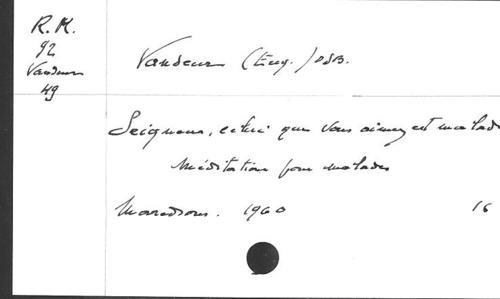 R.K.
92
Vandeur
49
Vandeur (Eug.) OSB.
Seigneur, celui que Vous aimez est malade
Méditation pour malades
Maredsous. 1960 16